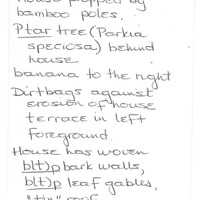 House propped by
bamboo poles.
Ptar tree (Parkia
speciosa) behind
house
banana to the right
Dirtbags against
erosion of house
terrace in left
foreground.
House has woven
blt)p bark walls,
blt)p leaf gables,
"tin" roof